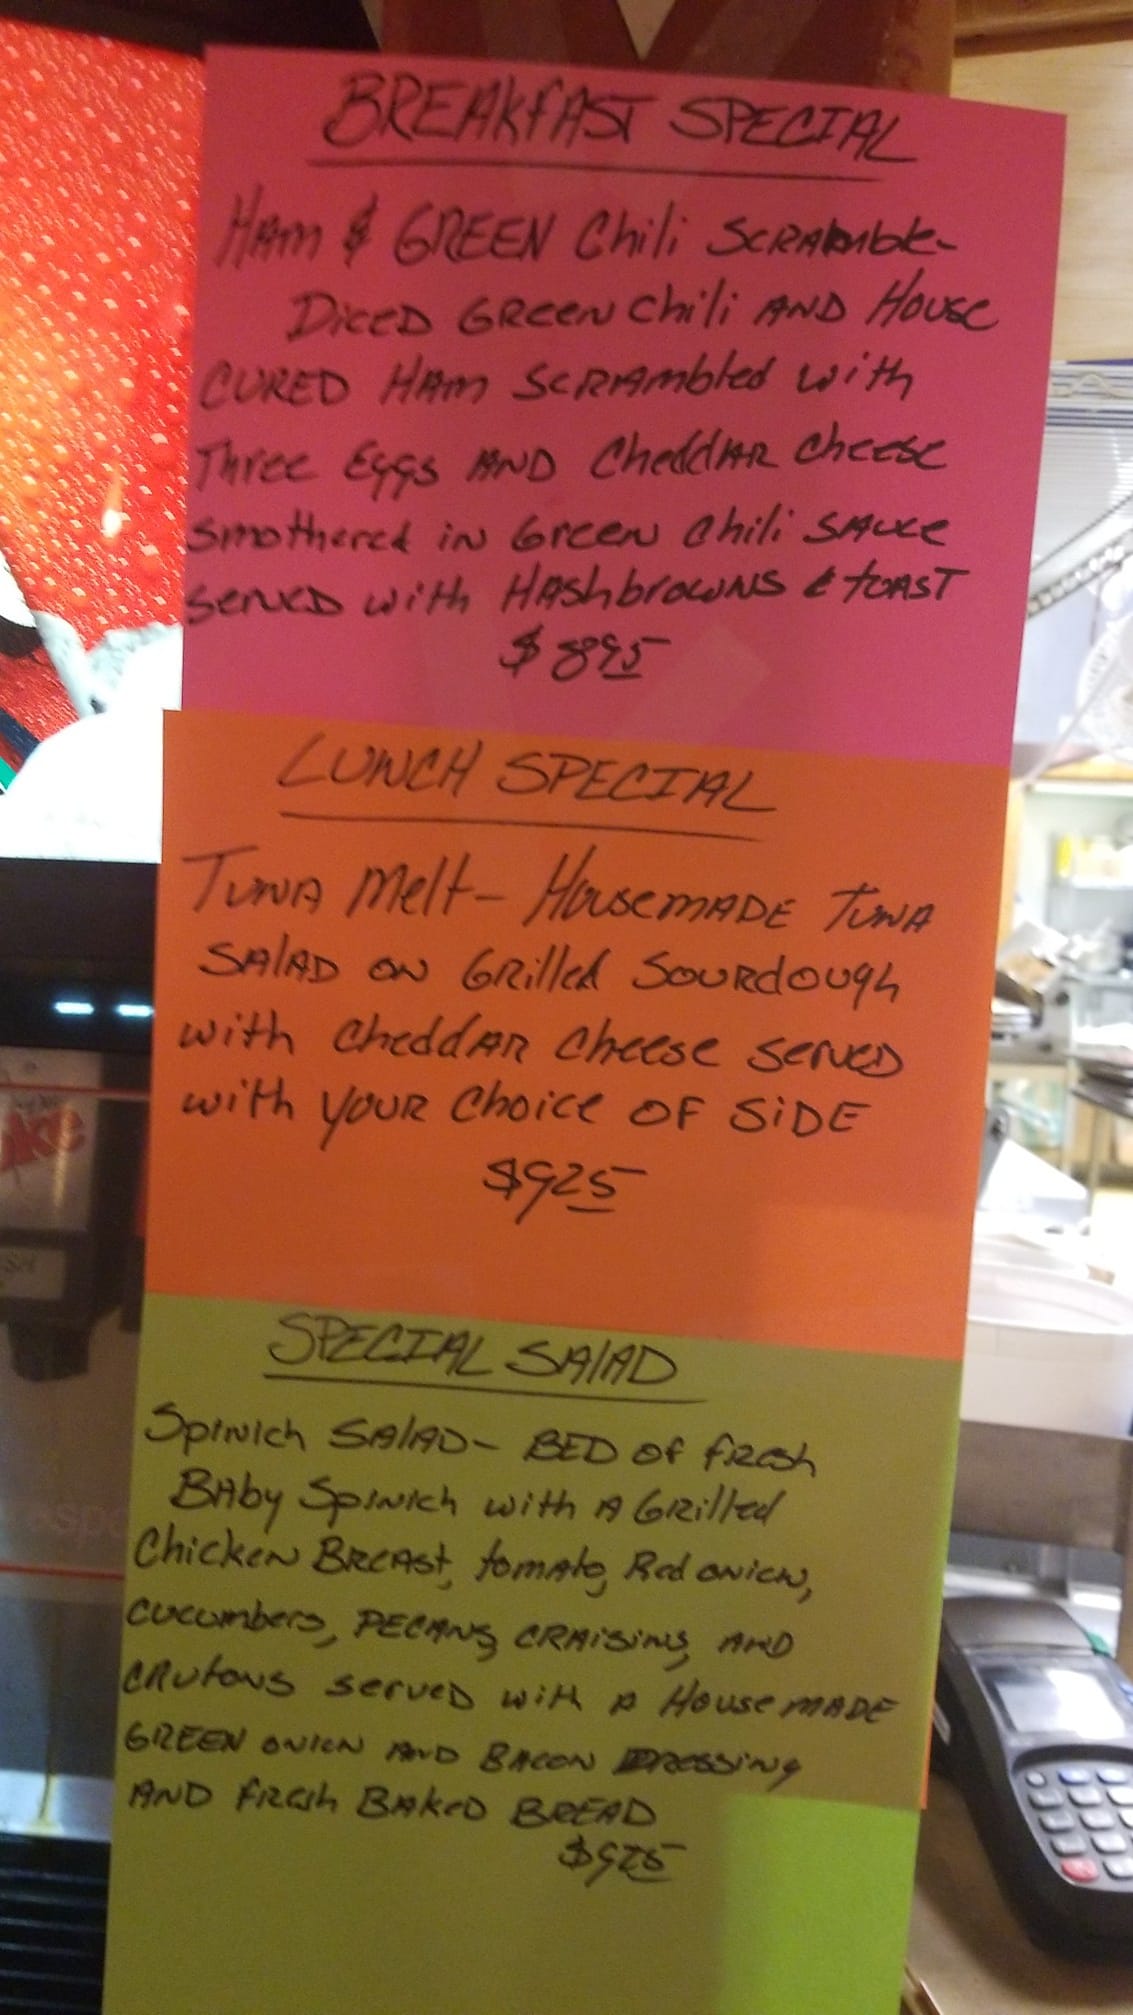 BREAKFAST SPECIAL
HAM & GREEN Chili SCRAMble-
DICED GREEN Chili AND HOUSE
CURED HAM SCRAMbled with
Three Eggs AND CheddAR Cheese
smothered iN Green Chili SAUCE
SERVED with HAShbrowNS & tOAST
$ 895
LUNCH SPECIAL
TUNA Melt- HousemADE TUNA
SAlAD ON GRilled SOURdough
with CheddAR Cheese SerVED
with YOUR Choice OF SiDE
$925
SPECIAL SAlAD
SpiNich SAlAD- BED OF fResh
BAby SpiNich with A GRilled
ChickeN BREAst, tomAto, Red ONioN,
CUCUmbers, PECANS, CRAiSiNS, AND
CRUtoNS serVED with A HousemADE
GREEN ONiON AND BACON DRessiNg
AND fResh BAKED BREAD